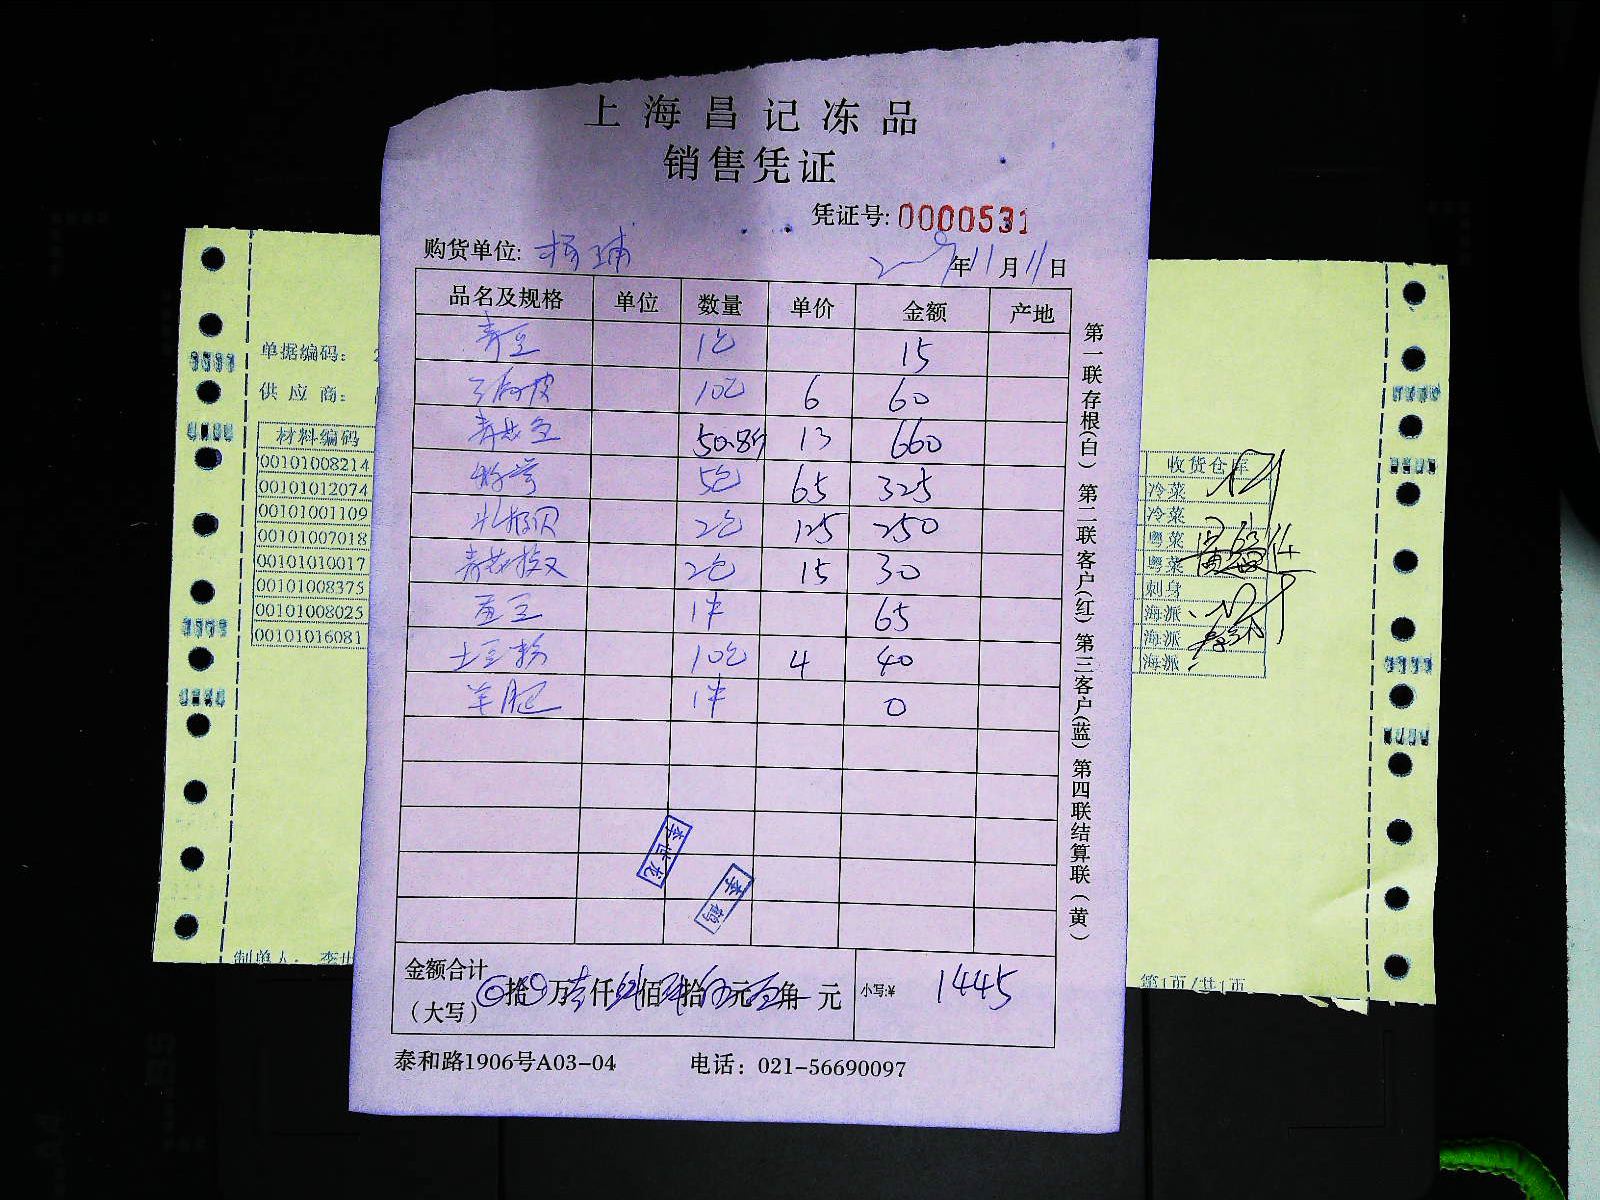 上海昌记冻品
销售凭证
凭证号: 0000531
购货单位: 杨埔
年11月11日
品名及规格 单位 数量 单价 金额 产地
青豆 1包 15
10包 6 60
50.8斤 13 660
5包 65 325
2包 125 250
2包 15 30
1件 65
土豆粉 10包 4 40
羊腿 1件 0
李世龙
李鹤
金额合计
(大写) 拾 万 仟 佰 拾 元 角 元 小写:¥ 1445
泰和路1906号A03-04 电话: 021-56690097
第一联存根(白) 第二联客户(红) 第三客户(蓝) 第四联结算联(黄)
单据编码:
供应商:
材料编码
00101008214
00101012074
00101001109
00101007018
00101010017
00101008375
00101008025
00101016081
制单人: 李世
收货仓库
冷菜
冷菜
粤菜
粤菜
刺身
海派
海派
海派
第1页/共1页